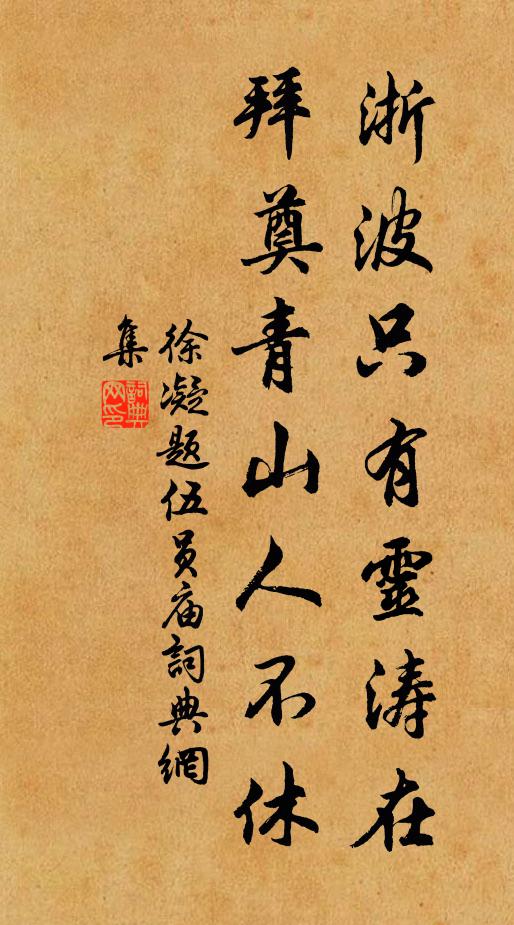 浙波只有靈涛在
拜奠青山人不休
徐凝题伍员庙詞典網
集
詞典
网印